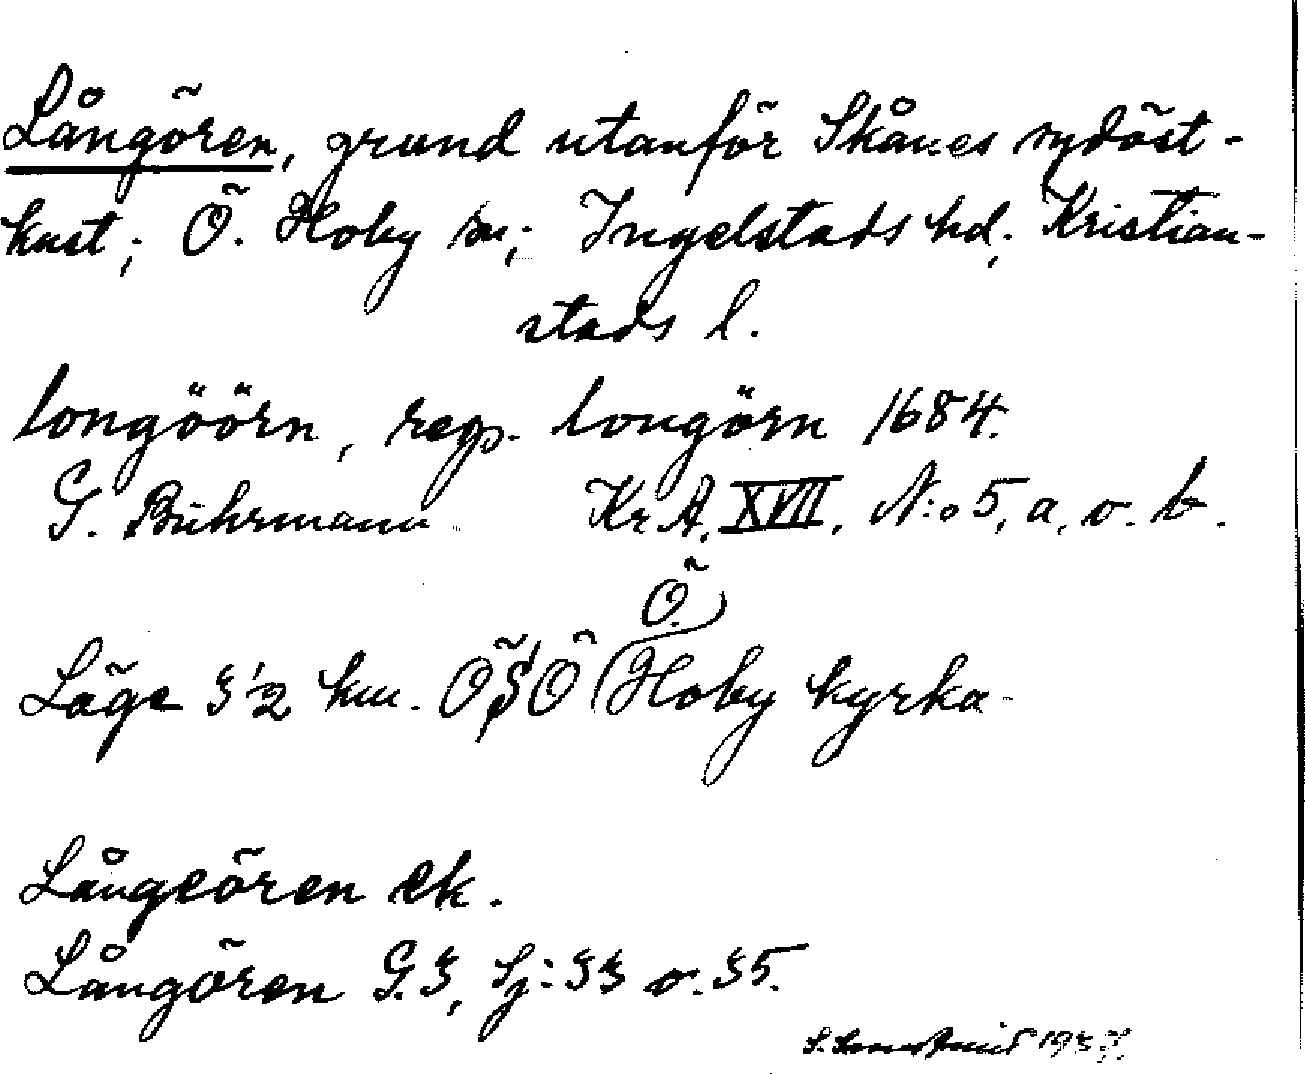 Långören, grund utanför Skånes sydöst-
kust; Ö. Hoby sn; Ingelstads hd; Kristian-
stads l.
longöörn, resp. longörn 1684.
G. Buhrmann KrA. XVII, N:o 5, a, o. b.
Läge 3 1/2 km. ÖSÖ Ö. Hoby kyrka
Långeören ek.
Långören G.3, Sj: 33 o. 35.